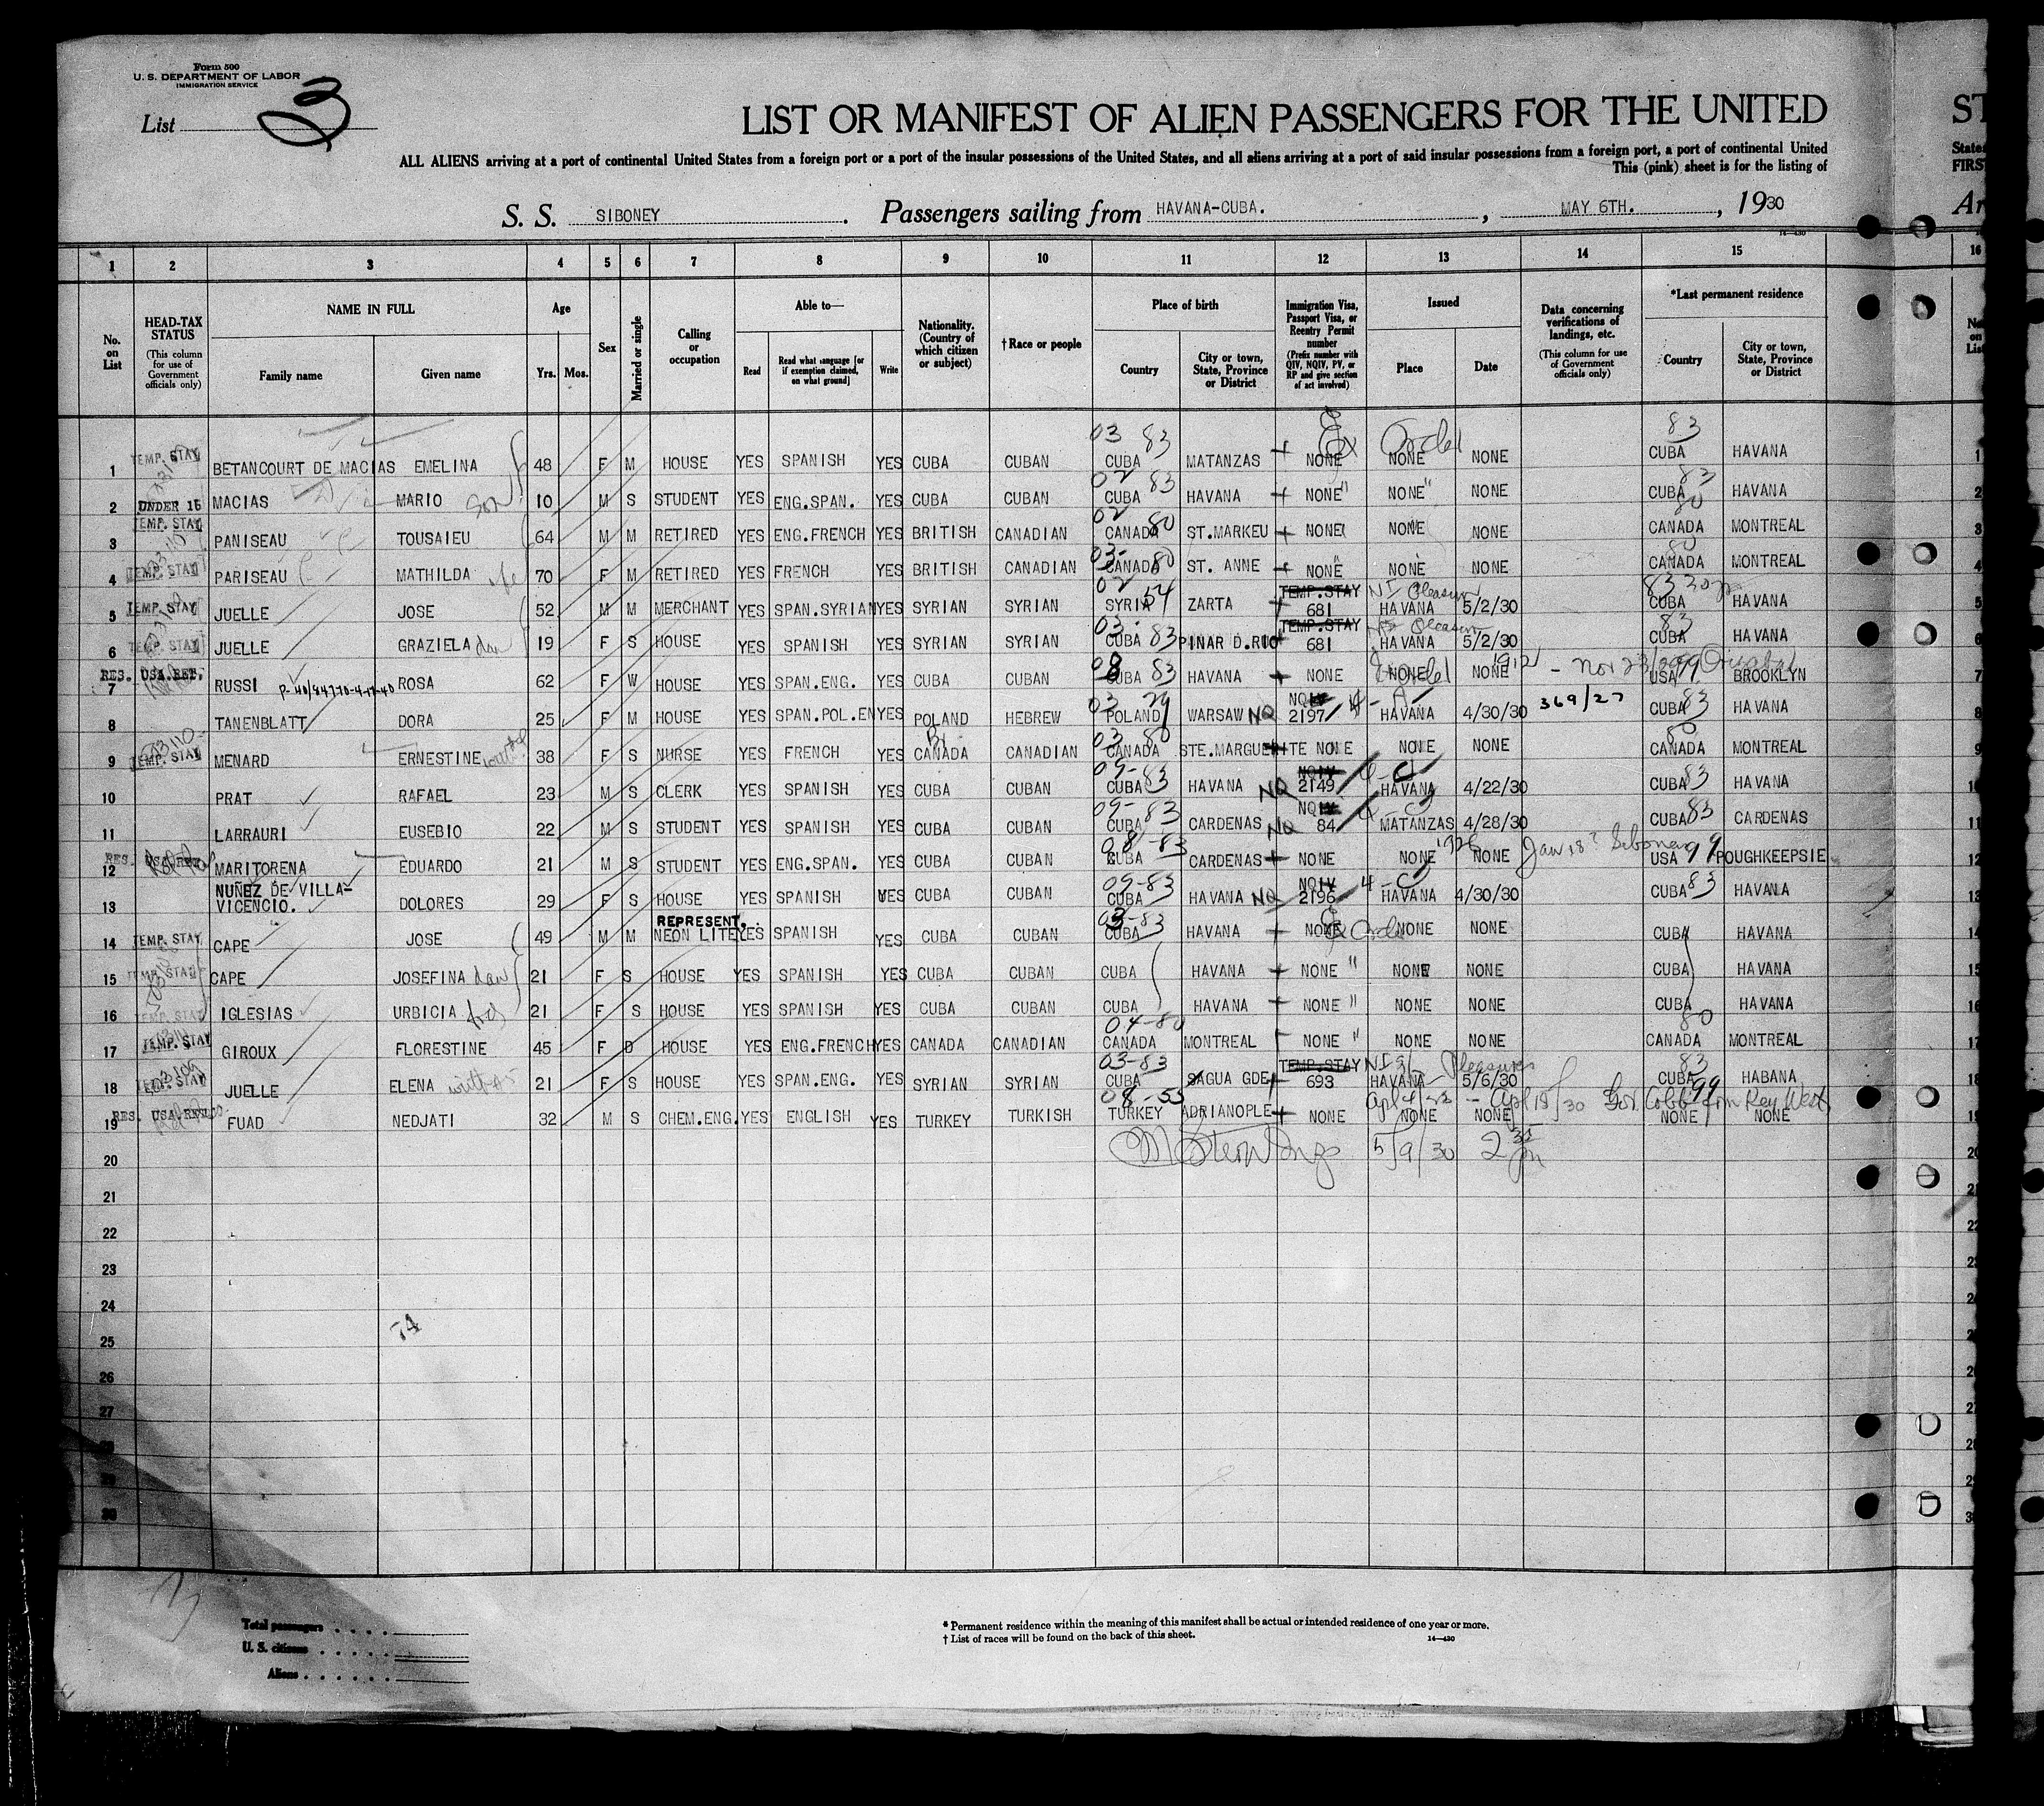 Form 500
U. S. DEPARTMENT OF LABOR
IMMIGRATION SERVICE
List 3
LIST OR MANIFEST OF ALIEN PASSENGERS FOR THE UNITED ST
ALL ALIENS arriving at a port of continental United States from a foreign port or a port of the insular possessions of the United States, and all aliens arriving at a port of said insular possessions from a foreign port, a port of continental United States
This (pink) sheet is for the listing of FIRST
S. S. SIBONEY. Passengers sailing from HAVANA-CUBA., MAY 6TH., 1930
1 2 3 4 5 6 7 8 9 10 11 12 13 14 15 16
No. on List
HEAD-TAX STATUS (This column for use of Government officials only)
NAME IN FULL Family name Given name
Age Yrs. Mos.
Sex
Married or single
Calling or occupation
Able to— Read Read what language [or if exemption claimed, on what ground] Write
Nationality. (Country of which citizen or subject)
† Race or people
Place of birth Country City or town, State, Province or District
Immigration Visa, Passport Visa, or Reentry Permit number (Prefix number with QIV, NQIV, PV, or RP and give section of act involved)
Issued Place Date
Data concerning verifications of landings, etc. (This column for use of Government officials only)
*Last permanent residence Country City or town, State, Province or District
1 TEMP. STAY BETANCOURT DE MACIAS EMELINA 48 F M HOUSE YES SPANISH YES CUBA CUBAN 03 83 CUBA MATANZAS NONE NONE NONE 83 CUBA HAVANA 1
2 UNDER 16 MACIAS MARIO son 10 M S STUDENT YES ENG.SPAN. YES CUBA CUBAN 02 83 CUBA HAVANA NONE " NONE " NONE 83 CUBA HAVANA 2
3 TEMP. STAY PANISEAU TOUSAIEU 64 M M RETIRED YES ENG.FRENCH YES BRITISH CANADIAN 02 80 CANADA ST.MARKEU NONE NONE NONE 80 CANADA MONTREAL 3
4 TEMP. STAY PARISEAU MATHILDA 70 F M RETIRED YES FRENCH YES BRITISH CANADIAN 03- 80 CANADA ST. ANNE NONE NONE NONE 80 CANADA MONTREAL 4
5 TEMP. STAY JUELLE JOSE 52 M M MERCHANT YES SPAN.SYRIAN YES SYRIAN SYRIAN 02 54 SYRIA ZARTA TEMP.STAY 681 Pleasure HAVANA 5/2/30 83 CUBA HAVANA 5
6 TEMP. STAY JUELLE GRAZIELA dau 19 F S HOUSE YES SPANISH YES SYRIAN SYRIAN 03- CUBA 83 PINAR D.RIO TEMP.STAY 681 Pleasure HAVANA 5/2/30 83 CUBA HAVANA 6
7 RES. USA.RET. RUSSI ROSA 62 F W HOUSE YES SPAN.ENG. YES CUBA CUBAN 08 83 CUBA HAVANA NONE NONE NONE 1912 USA 99 BROOKLYN 7
8 TANENBLATT DORA 25 F M HOUSE YES SPAN.POL.EN YES POLAND HEBREW 03 POLAND WARSAW NQ NQIV 2197 4-A HAVANA 4/30/30 369/27 CUBA 83 HAVANA 8
9 TEMP. STAY MENARD ERNESTINE 38 F S NURSE YES FRENCH YES Br CANADA CANADIAN 03 80 CANADA STE.MARGUERITE NONE NONE NONE 80 CANADA MONTREAL 9
10 PRAT RAFAEL 23 M S CLERK YES SPANISH YES CUBA CUBAN 09- 83 CUBA HAVANA NQ NQIV 2149 4-C HAVANA 4/22/30 CUBA 83 HAVANA 10
11 LARRAURI EUSEBIO 22 M S STUDENT YES SPANISH YES CUBA CUBAN 09- 83 CUBA CARDENAS NQ NQIV 84 4-C MATANZAS 4/28/30 CUBA 83 CARDENAS 11
12 RES. USA.RET. MARITORENA EDUARDO 21 M S STUDENT YES ENG.SPAN. YES CUBA CUBAN 08-83 CUBA CARDENAS NONE NONE NONE Siboney USA 99 POUGHKEEPSIE 12
13 NUÑEZ DE VILLA-VICENCIO. DOLORES 29 F S HOUSE YES SPANISH YES CUBA CUBAN 09-83 CUBA HAVANA NQ NQIV 2196 4-C HAVANA 4/30/30 CUBA 83 HAVANA 13
14 TEMP. STAY CAPE JOSE 49 M M REPRESENT. NEON LITE YES SPANISH YES CUBA CUBAN 03-83 CUBA HAVANA NONE NONE NONE CUBA HAVANA 14
15 TEMP. STAY CAPE JOSEFINA dau 21 F S HOUSE YES SPANISH YES CUBA CUBAN CUBA HAVANA NONE " NONE NONE CUBA HAVANA 15
16 TEMP. STAY IGLESIAS URBICIA 21 F S HOUSE YES SPANISH YES CUBA CUBAN CUBA HAVANA NONE " NONE NONE CUBA HAVANA 16
17 TEMP. STAY GIROUX FLORESTINE 45 F D HOUSE YES ENG.FRENCH YES CANADA CANADIAN 04-80 CANADA MONTREAL NONE " NONE NONE 80 CANADA MONTREAL 17
18 TEMP. STAY JUELLE ELENA 21 F S HOUSE YES SPAN.ENG. YES SYRIAN SYRIAN 03-83 CUBA SAGUA GDE TEMP.STAY 693 Pleasure HAVANA 5/6/30 83 CUBA HABANA 18
19 RES. USA.RET. FUAD NEDJATI 32 M S CHEM.ENG. YES ENGLISH YES TURKEY TURKISH 08-55 TURKEY ADRIANOPLE NONE NONE NONE Apl 15/30 Gov. Cobb from Key West 99 NONE NONE 19
20 5/9/30 2 35 pm
21
22
23
24
25 74
26
27
28
29
30
Total passengers
U. S. citizens
Aliens
* Permanent residence within the meaning of this manifest shall be actual or intended residence of one year or more.
† List of races will be found on the back of this sheet.
14—430